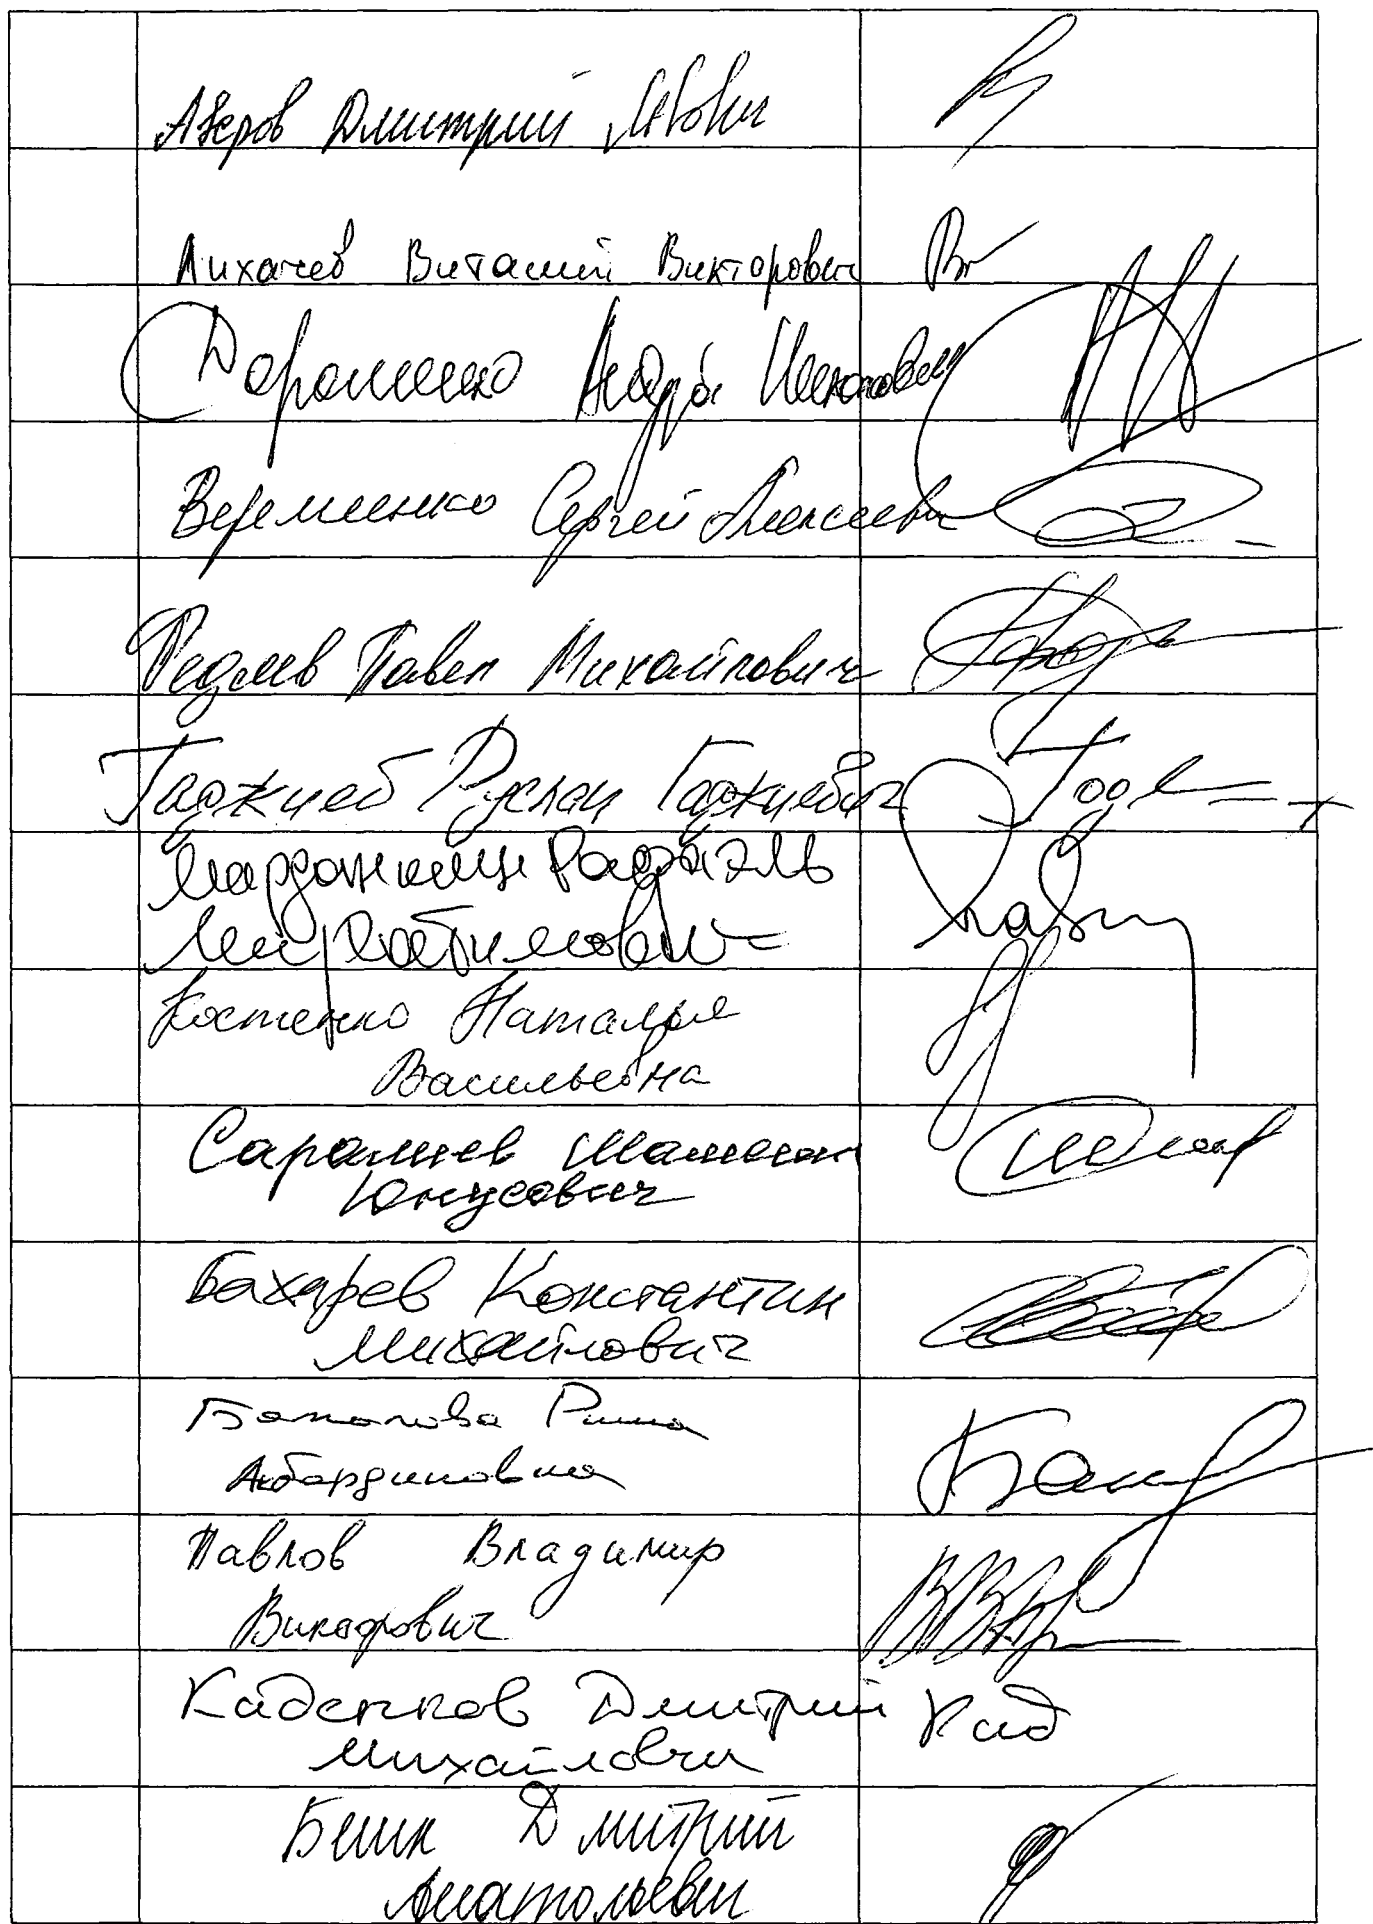 Аверов Дмитрий Львович
Лихачев Виталий Викторович
Дорошенко Андрей Николаевич
Веремеенко Сергей Алексеевич
Федяев Павел Михайлович
Гаджиев Руслан Гаджиевич
Марданшин Рафаэль
Мирхатимович
Костенко Наталья
Васильевна
Саралиев Шамсаил
Юнусович
Бахарев Константин
Михайлович
Баталова Рима
Акбердиновна
Павлов Владимир
Викторович
Каденков Дмитрий
Михайлович
Кад
Бешк Дмитрий
Анатольевич